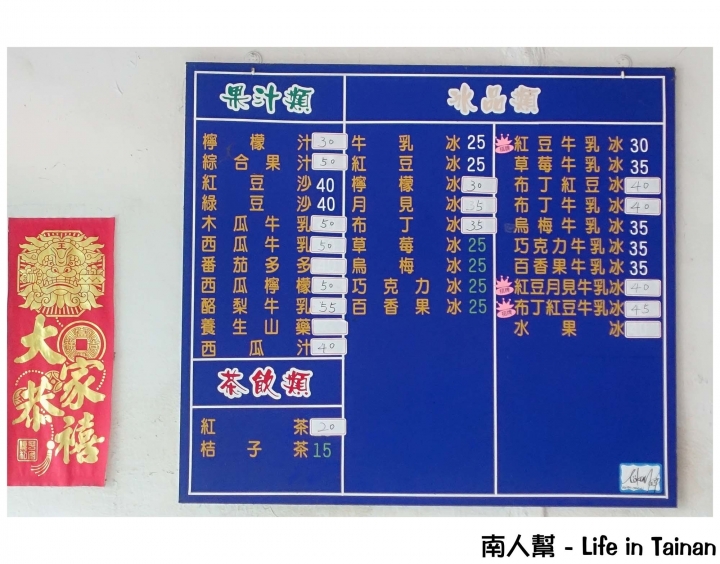 果汁類
檸檬汁 30
綜合果汁 50
紅豆沙 40
綠豆沙 40
木瓜牛乳 50
西瓜牛乳 50
番茄多多
西瓜檸檬 50
酪梨牛乳 55
養生山藥
西瓜汁 40
茶飲類
紅茶 20
桔子茶 15
冰品類
牛乳冰 25
紅豆冰 25
檸檬冰 30
月見冰 35
布丁冰 35
草莓冰 25
烏梅冰 25
巧克力冰 25
百香果冰 25
紅豆牛乳冰 30
草莓牛乳冰 35
布丁紅豆冰 40
布丁牛乳冰 40
烏梅牛乳冰 35
巧克力牛乳冰 35
百香果牛乳冰 35
紅豆月見牛乳冰 40
布丁紅豆牛乳冰 45
水果冰
大家恭禧
南人幫 - Life in Tainan